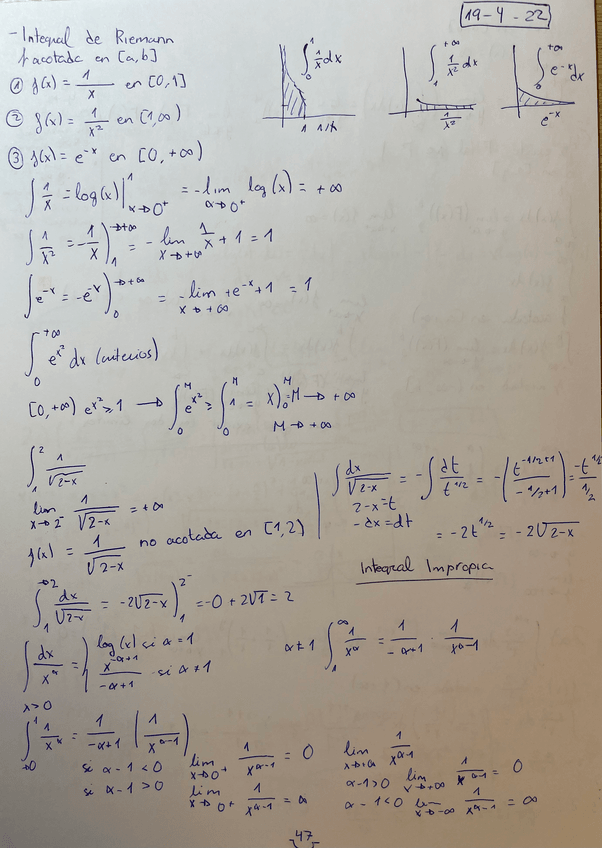 19-4-22
- Integral de Riemann
f acotada en [a,b]
① f(x) = 1/x en [0,1]
② f(x) = 1/x² en [1,∞)
③ f(x) = e^-x en [0,+∞)
∫_0^1 1/x dx
1 1/x
∫_1^+∞ 1/x² dx
1/x²
∫_0^+∞ e^-x dx
e^-x
∫ 1/x = log(x)|_{x→0+}^1 = -lim_{x→0+} log(x) = +∞
∫ 1/x² = -1/x)_1^{→+∞} = -lim_{x→+∞} 1/x + 1 = 1
∫ e^-x = -e^-x)_0^{→+∞} = -lim_{x→+∞} +e^-x + 1 = 1
∫_0^+∞ e^x² dx (criterios)
[0,+∞) e^x² ≥ 1 → ∫_0^M e^x² ≥ ∫_0^M 1 = x)_0^M = M → +∞
M → +∞
∫_1^2 1/√(2-x)
lim_{x→2^-} 1/√(2-x) = +∞
f(x) = 1/√(2-x) no acotada en [1,2)
∫ dx/√(2-x) = -∫ dt/t^1/2 = -(t^(-1/2+1)/(-1/2+1)) = -t^1/2/1/2
2-x=t
-dx=dt
= -2t^1/2 = -2√(2-x)
Integral Impropia
∫_1^{→2} dx/√(2-x) = -2√(2-x))_1^{2^-} = -0 + 2√1 = 2
∫ dx/x^α = { log(x) si α=1
x^(-α+1)/(-α+1) si α≠1
x>0
α≠1 ∫_1^∞ 1/x^α = 1/(-α+1) · 1/x^(α-1)
∫_{→0}^1 1/x^α = 1/(-α+1) (1/x^(α-1))
si α-1<0 lim_{x→0+} 1/x^(α-1) = 0
si α-1>0 lim_{x→0+} 1/x^(α-1) = ∞
lim_{x→+∞} 1/x^(α-1)
α-1>0 lim_{x→+∞} 1/x^(α-1) = 0
α-1<0 lim_{x→-∞} 1/x^(α-1) = ∞
-47-